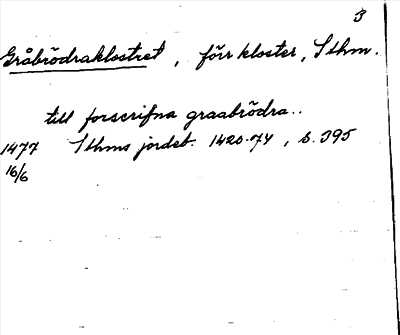 3
Gråbrödraklostret, förr kloster, Sthm.
till forscrifna graabrödra..
1477 Sthms jordeb. 1420-74, s. 395
16/6